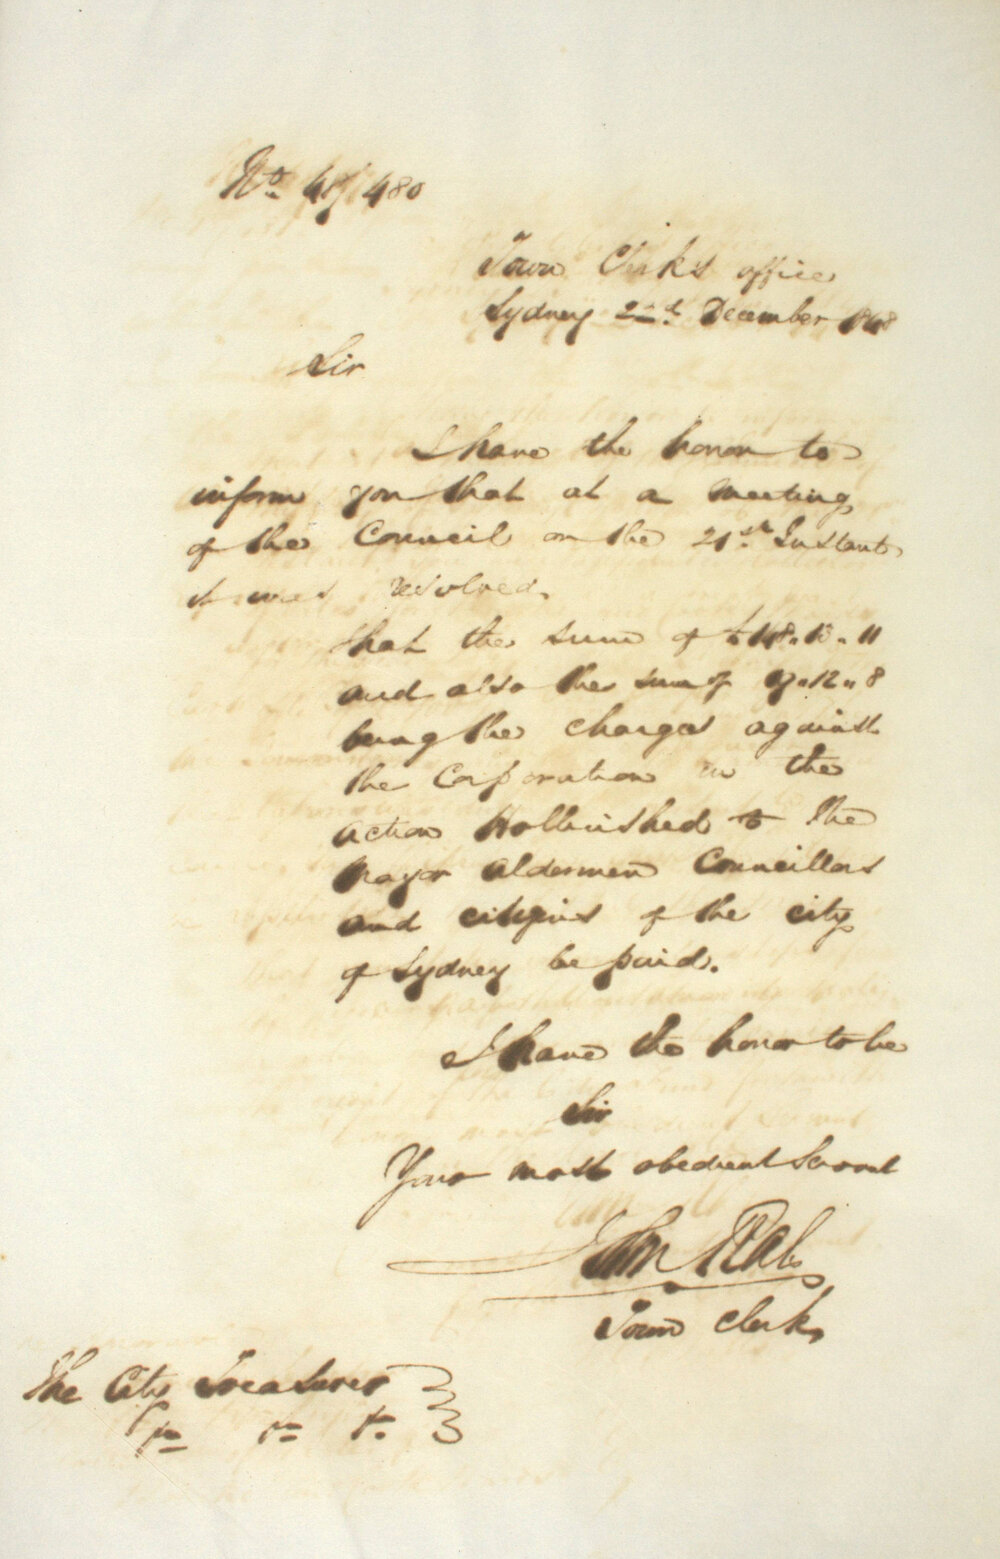 No. 48/480
Town Clerk's office
Sydney 22nd December 1848
Sir
I have the honor to
inform you that at a meeting
of the Council on the 21st Instant
it was resolved.
that the sum of £148.. 13.. 11
and also the sum of 17..12..8
being the charges against
the Corporation in the
action Hollinshed to The
Mayor Aldermen Councillors
and citizens of the city
of Sydney be paid.
I have the honor to be
Sir
Your most obedient Servant
John Rae
Town Clerk
The City Treasurer